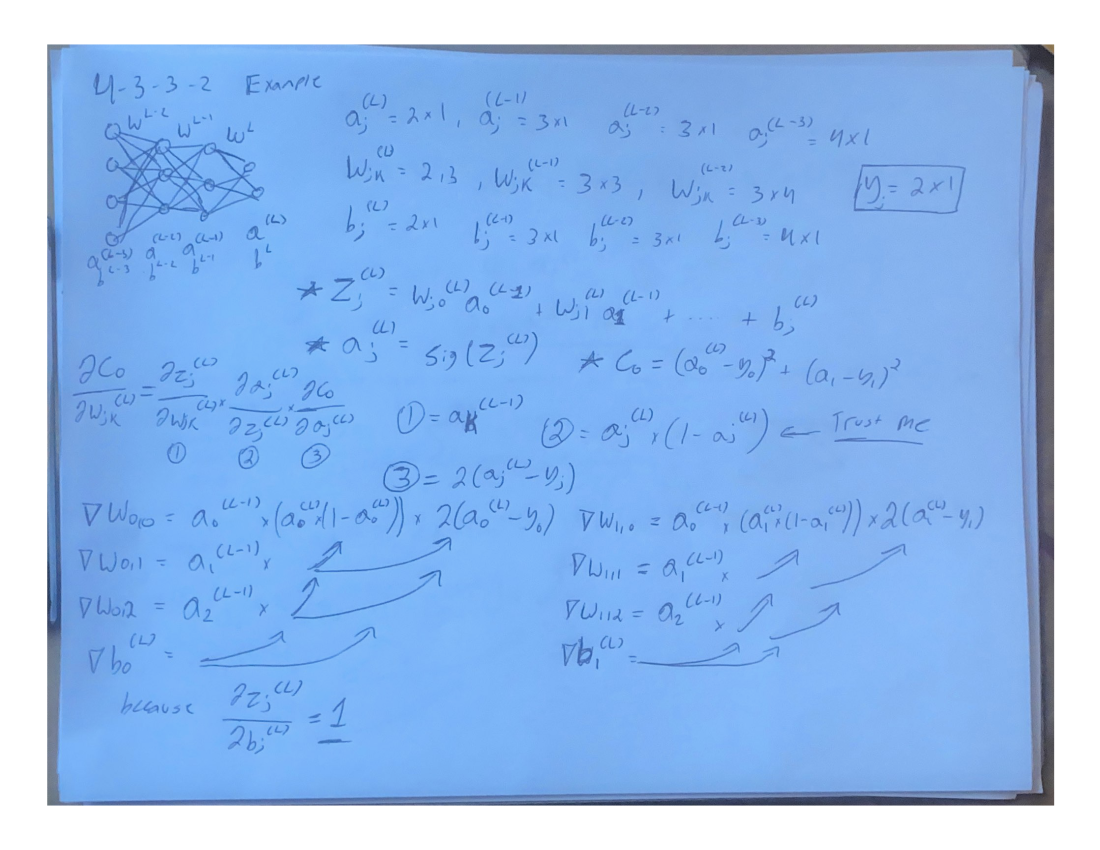 4-3-3-2 Example
W^{L-2} W^{L-1} W^{L}
a^{(L-3)} a^{(L-2)} a^{(L-1)} a^{(L)}
b^{L-3} b^{L-2} b^{L-1} b^{L}
a_j^{(L)} = 2×1, a_j^{(L-1)} = 3×1 a_j^{(L-2)} = 3×1 a_j^{(L-3)} = 4×1
W_{jk}^{(L)} = 2,3 , W_{jk}^{(L-1)} = 3×3 , W_{jk}^{(L-2)} = 3×4
y_j = 2×1
b_j^{(L)} = 2×1 b_j^{(L-1)} = 3×1 b_j^{(L-2)} = 3×1 b_j^{(L-3)} = 4×1
* Z_j^{(L)} = W_{j0}^{(L)} a_0^{(L-1)} + W_{j1}^{(L)} a_1^{(L-1)} + .... + b_j^{(L)}
* a_j^{(L)} = Sig(Z_j^{(L)}) * C_0 = (a_0^{(L)} - y_0)^2 + (a_1 - y_1)^2
∂C_0/∂W_{jk}^{(L)} = ∂Z_j^{(L)}/∂W_{jk}^{(L)} × ∂a_j^{(L)}/∂Z_j^{(L)} × ∂C_0/∂a_j^{(L)}
① ② ③
① = a_k^{(L-1)} ② = a_j^{(L)} × (1 - a_j^{(L)}) ← Trust me
③ = 2(a_j^{(L)} - y_j)
∇W_{0,0} = a_0^{(L-1)} × (a_0^{(L)} × (1 - a_0^{(L)})) × 2(a_0^{(L)} - y_0) ∇W_{1,0} = a_0^{(L-1)} × (a_1^{(L)} × (1 - a_1^{(L)})) × 2(a_1^{(L)} - y_1)
∇W_{0,1} = a_1^{(L-1)} × ∇W_{1,1} = a_1^{(L-1)} ×
∇W_{0,2} = a_2^{(L-1)} × ∇W_{1,2} = a_2^{(L-1)} ×
∇b_0^{(L)} = ∇b_1^{(L)} =
because ∂Z_j^{(L)}/∂b_j^{(L)} = 1